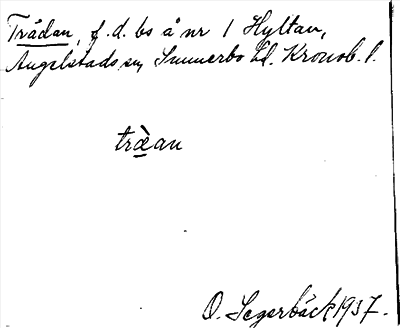 Trådan, f.d. bs å nr 1 Hyltan,
Angelstads sn, Sunnerbo hd. Kronob. l.
træ̀an
O. Segerbäck 1937.